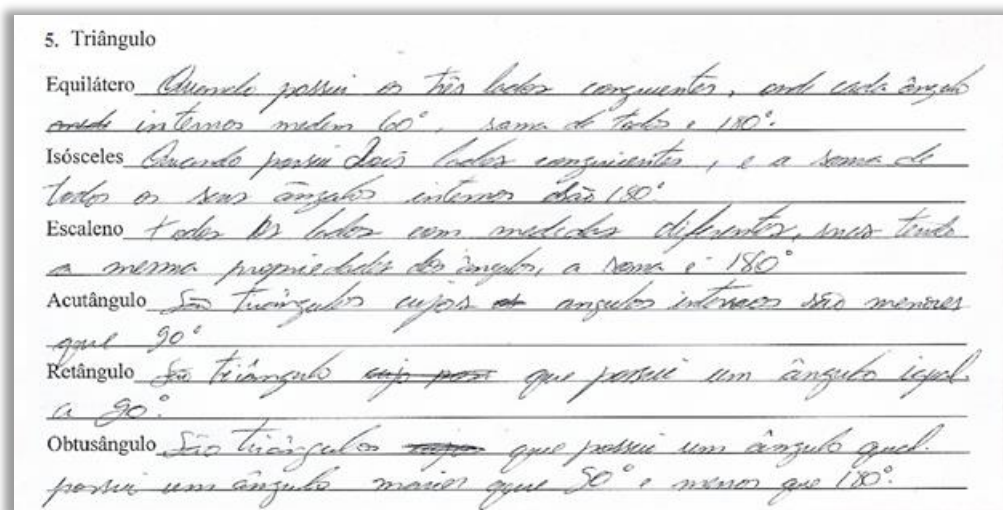 5. Triângulo
Equilátero Quando possui os três lados congruentes, onde cada ângulo
internos medem 60°, soma de todos é 180°.
Isósceles Quando possui dois lados congruentes, e a soma de
todos os seus ângulos internos são 180°.
Escaleno todos os lados com medidas diferentes, mas tendo
a mesma propriedades dos ângulos, a soma é 180°
Acutângulo São triângulos cujos angulos internos são menores
que 90°
Retângulo São triângulo que possui um ângulo igual
a 90°.
Obtusângulo São triângulos que possui um ângulo qual.
possui um angulo maior que 90° e menor que 180°.